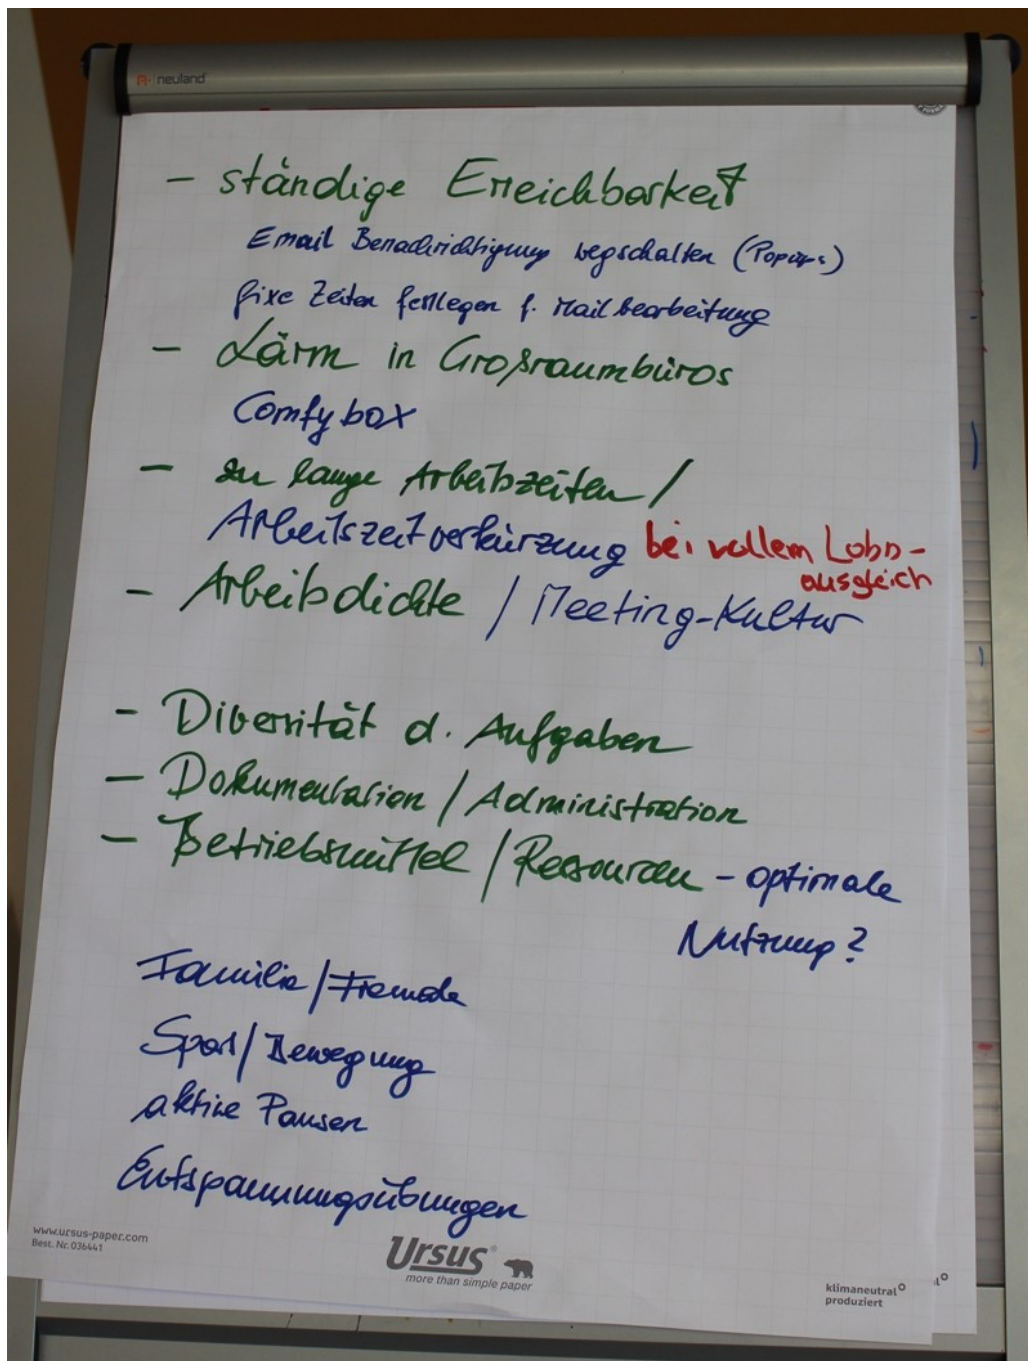 neuland
- ständige Erreichbarkeit
Email Benachrichtigung wegschalten (Popups)
fixe Zeiten festlegen f. Mailbearbeitung
- Lärm in Großraumbüros
Comfybox
- zu lange Arbeitszeiten /
Arbeitszeitverkürzung bei vollem Lohn-
ausgleich
- Arbeitsdichte / Meeting-Kultur
- Diversität d. Aufgaben
- Dokumentation / Administration
- Betriebsmittel / Ressourcen - optimale
Nutzung?
Familie / Freunde
Sport / Bewegung
aktive Pausen
Entspannungsübungen
www.ursus-paper.com
Best. Nr. 036441
Ursus®
more than simple paper
klimaneutral
produziert